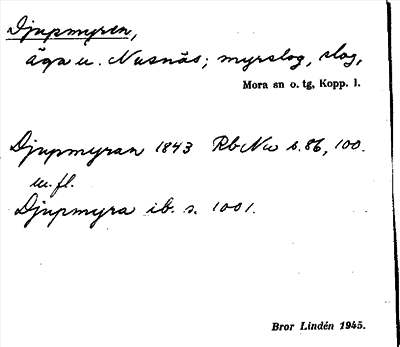 Djupmyren,
äga u. Nusnäs; myrslog, slog,
Mora sn o. tg, Kopp. l.
Djupmyran 1843 Rb Nu s. 86, 100.
m. fl.
Djupmyra ib. s. 1001.
Bror Lindén 1945.